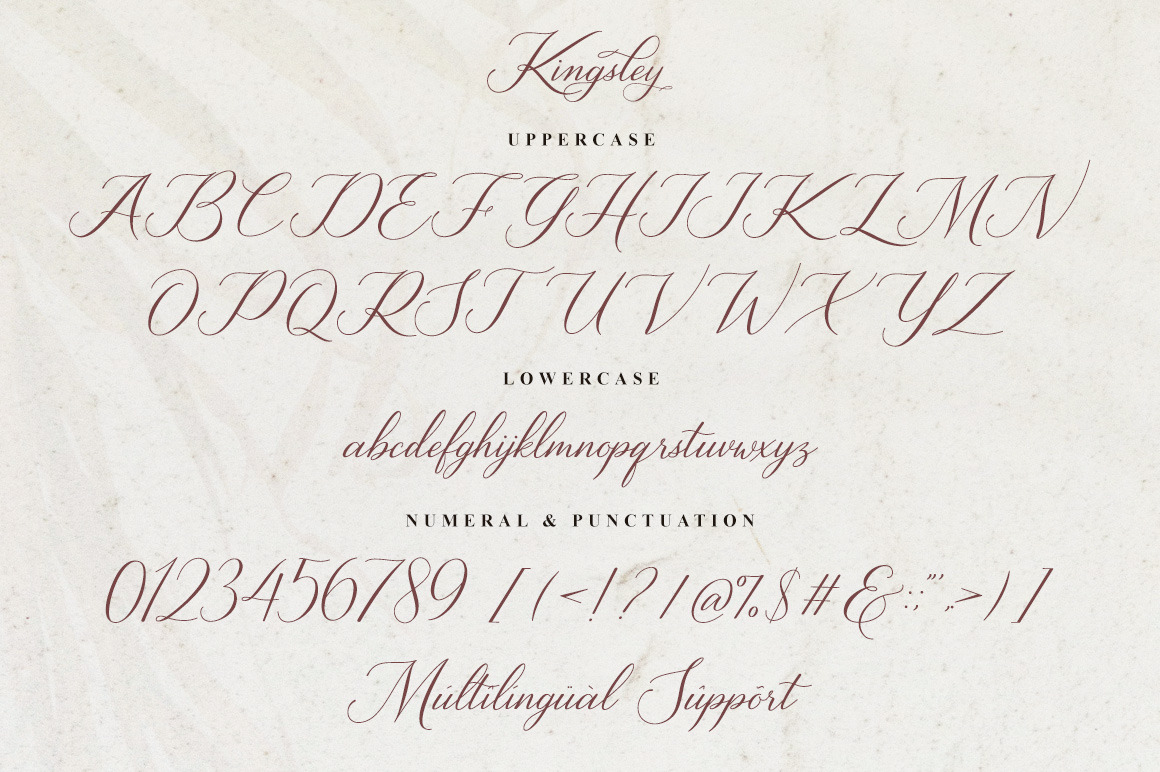 Kingsley
UPPERCASE
ABCDEFGHIJKLMN
OPQRSTUVWXYZ
LOWERCASE
abcdefghijklmnopqrstuvwxyz
NUMERAL & PUNCTUATION
0123456789 [(<!?/@%$#&:;"',.>)]
Múltïlíngüàl Sûppõrt